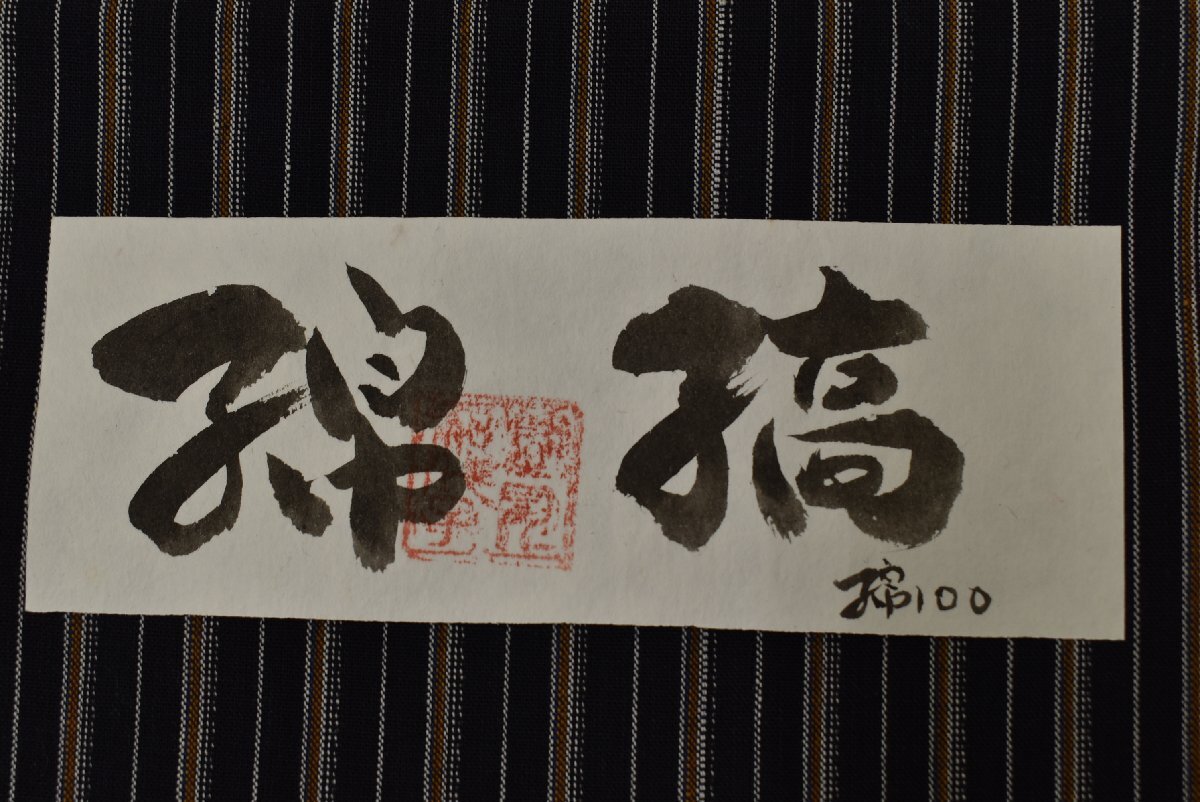 綿縞
綿100